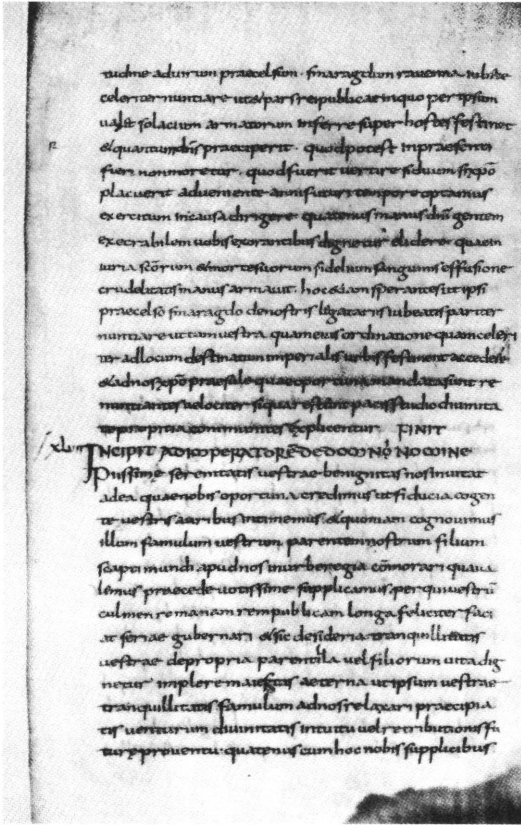 tudine ad virum praecelsum · smaragdum ravenna iubete
celeriter nuntiare ut ea pars reipublicae in quo per ipsum
valet solacium armatorum inferre super hostes festinet
& quantum dns praeceperit · quod potest in praesenti
fieri non moretur · quod si uertere si dum in xpo
placuerit adveniente anni futuri tempore optamus
exercitum in causa dirigere quatenus manus dni gentem
execrabilem vobis exorantibus dignetur elidere quae in
iuria scorum & mortes suorum fidelium sanguinis effusione
crudelitatis manus armauit · hoc etiam sperantes ut ipsi
praecelso smaragdo de nostris legatariis iubeatis pariter
nuntiare ut tam vestra quam eius ordinatione quam celeri
ter ad locum destinatum imperialis urbis festinent accedere
& ad nos xpo praesule quae oportuna mandata sunt re
nuntiantes velociter si qua restant pacis studio divinita
te propria communites explicentur FINIT
XLII INCIPIT AD IMPERATOREM DE DOMINO NOMINE
Piissime serenitatis vestrae benignitas nos inuitat
ad ea quae nobis oportuna credimus ut fiducia cogen
te vestris auribus intimemus · & quoniam cognouimus
illum famulum vestrum parentem nostrum filium
scapti mundi apud nos in urbe regia commorari qua ua
lemus praece deuotissime supplicamus · per qui vestru
culmen romanam rempublicam longa feliciter faci
at seriae gubernari & sic desideria tranquillitatis
vestrae de propria parentila vel filiorum vita dig
netur implere maiestas aeterna ut ipsum vestrae
tranquillitatis famulum ad nos relaxari praecipia
tis venturum divinitatis intuitu vel retributionis fu
turae proventu · quatenus cum hoc nobis supplicibus